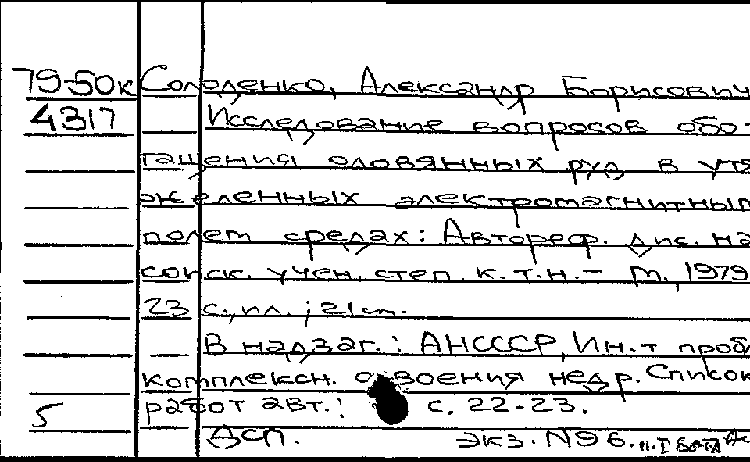 79-50к Солоденко, Александр Борисович
4317 Исследование вопросов обо-
гащения оловянных руд в утя
желенных электромагнитным
полем средах: Автореф. дис. на
соиск. учен. степ. к.т.н. - М., 1979
23 с., ил.; 21 см.
В надзаг.: АН СССР, Ин-т проб
комплексн. освоения недр. Список
5 работ авт.: с. 22-23.
ДСП. экз. №96.